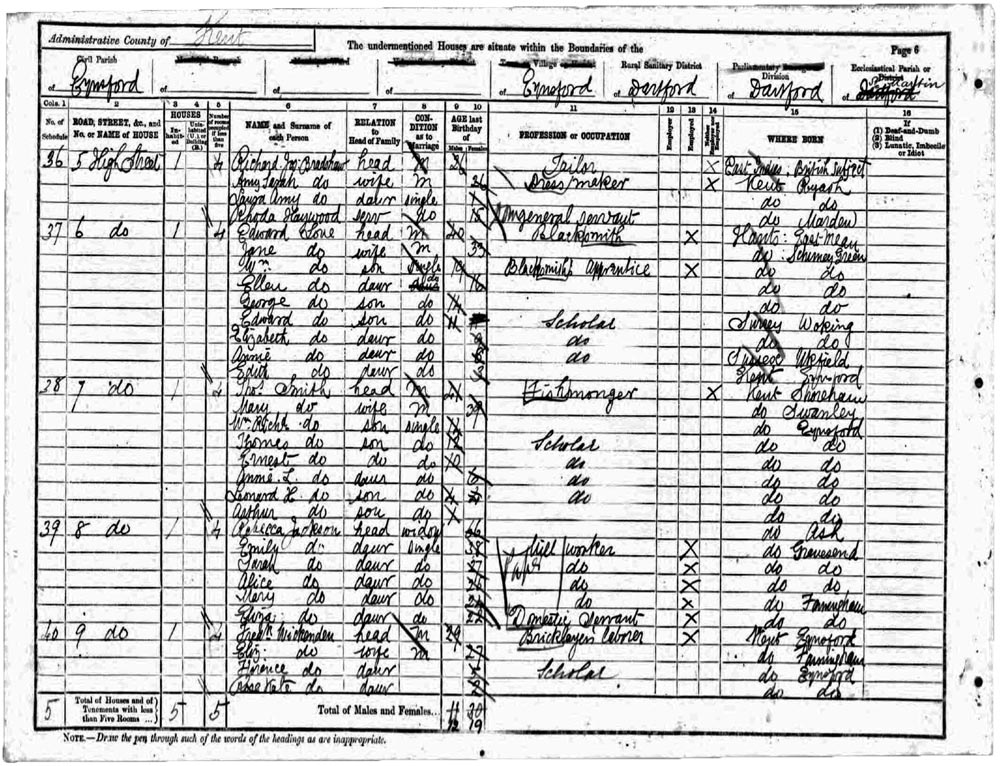 Administrative County of Kent
The undermentioned Houses are situate within the Boundaries of the
Page 6
Civil Parish Municipal Borough Municipal Ward Village Rural Sanitary District Parliamentary Division Ecclesiastical Parish or District
of Eynsford of of of of Eynsford of Dartford of Dartford of
Cols. 1 2 3 4 5 6 7 8 9 10 11 12 13 14 15 16
No. of Schedule ROAD, STREET, &c., and No. or NAME of HOUSE HOUSES Inhabited Uninhabited (U.) or Building (B.) Number of rooms occupied if less than five NAME and Surname of each Person RELATION to Head of Family CONDITION as to Marriage AGE last Birthday of Males Females PROFESSION or OCCUPATION Employer Employed Neither WHERE BORN If (1) Deaf-and-Dumb (2) Blind (3) Lunatic, Imbecile or Idiot
36 5 High Street 1 4 Richard Bradshaw head M 36 Tailor X East Indies, British Subject
Amy Sarah do wife M 36 Dressmaker X Kent Ryash
Laura Amy do daur single do do
Rhoda Haywood serv do 15 general servant do Marden
37 6 do 1 4 Edward head M Blacksmith X Hants: East Meon
Jane do wife M do: Green
Wm do son single 19 Blacksmiths Apprentice X do do
Ellen do daur do 16 do do
George do son do 14 do do
Edward do son do 11 Scholar Surrey Woking
Elizabeth do daur do do do do
Annie do daur do do Sussex
Edith do daur do Kent Eynsford
28 7 do 1 4 Thos. Smith head M Fishmonger X Kent Shoreham
Mary do wife M 39 do Swanley
Wm Richd. do son single do Eynsford
Thomas do son do 12 Scholar do do
Ernest do do do 10 do do do
Annie L. do daur do do do do
Leonard H. do son do do do do
Arthur do son do do do
39 8 do 1 4 Rebecca Jackson head widow do Ash
Emily do daur single Mill worker X do Gravesend
Sarah do daur do 27 do X do do
Alice do daur do do X do do
Mary do daur do do X do Farningham
Eliza do daur do 22 Domestic Servant X do do
40 9 do 1 4 Fredk. Wickenden head M 29 Bricklayers laborer X Kent Eynsford
Eliz. do wife M 27 do Farningham
Florence do daur Scholar do Eynsford
Rose Kate do daur do do
5 Total of Houses and of Tenements with less than Five Rooms ...} 5 5 Total of Males and Females... 11 20
12 19
NOTE.—Draw the pen through such of the words of the headings as are inappropriate.